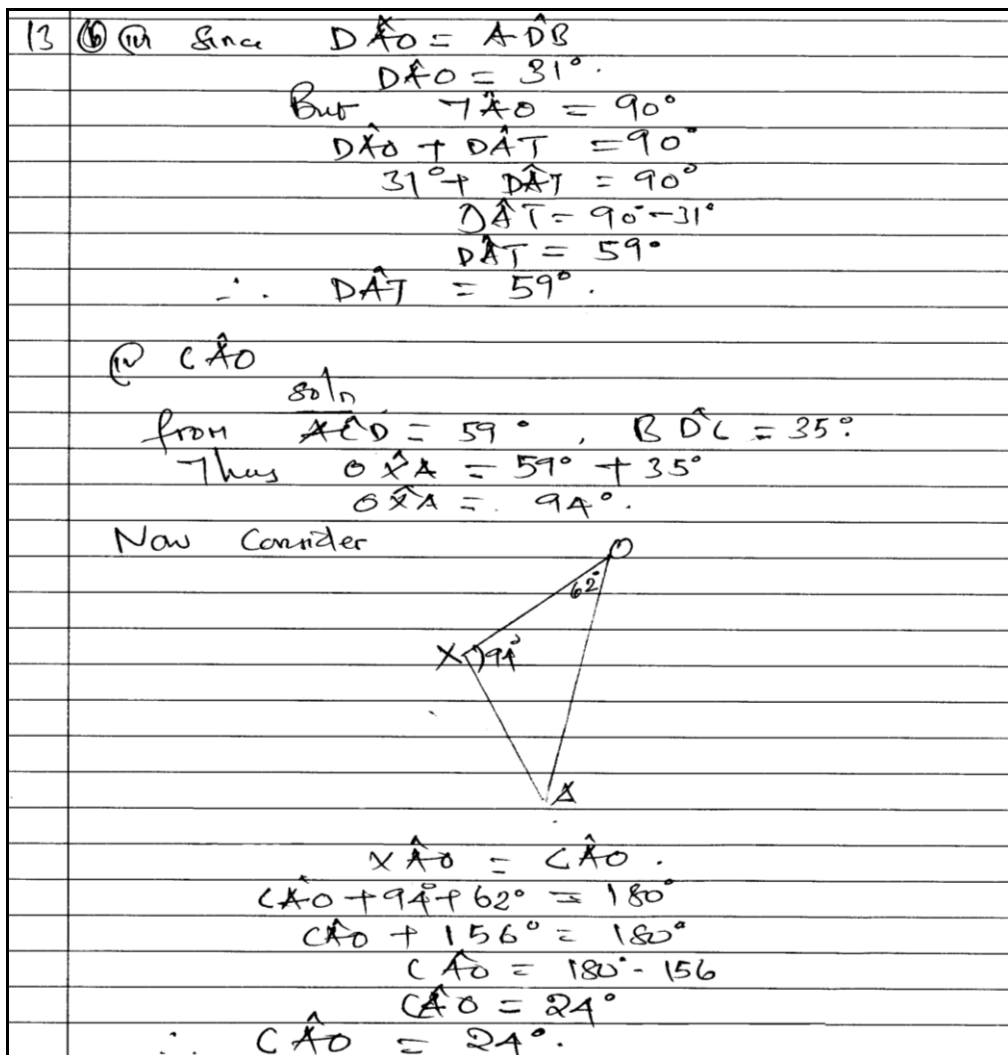 13 (b) (iii) Since DÂO = AD̂B
DÂO = 31°.
But TÂO = 90°
DÂO + DÂT = 90°
31° + DÂT = 90°
DÂT = 90° - 31°
DÂT = 59°
∴ DÂT = 59°.
(iv) CÂO
soln
from AĈD = 59°, BD̂C = 35°.
Thus OX̂A = 59° + 35°
OX̂A = 94°.
Now Consider
O
62°
X 94°
A
XÂO = CÂO.
CÂO + 94° + 62° = 180°
CÂO + 156° = 180°
CÂO = 180° - 156
CÂO = 24°
∴ CÂO = 24°.